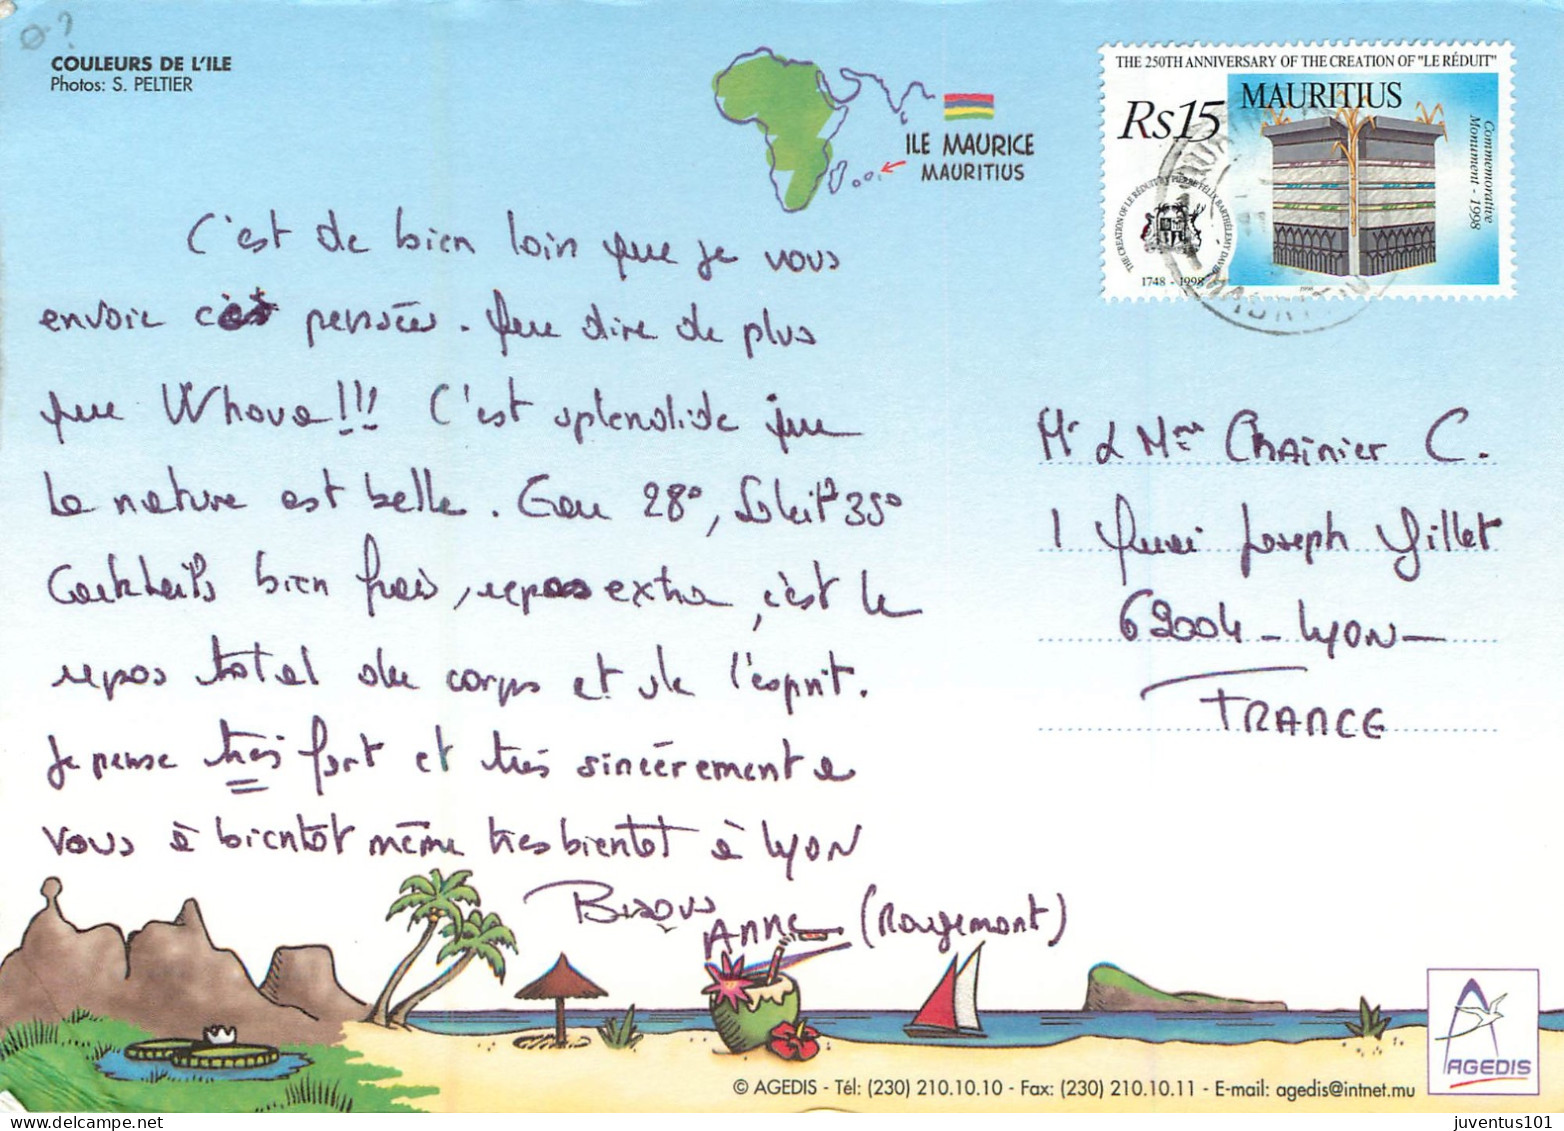 COULEURS DE L'ILE
Photos: S. PELTIER
ILE MAURICE
MAURITIUS
THE 250TH ANNIVERSARY OF THE CREATION OF "LE RÉDUIT"
Rs15
MAURITIUS
Commemorative
Monument - 1998
1748 - 1998
C'est de bien loin que je vous
envoie ces pensées. Que dire de plus
que Whaoua!!! C'est splendide que
la nature est belle. Eau 28°, Soleil 35°
Cocktails bien frais, repas extra, c'est le
repos total du corps et de l'esprit.
Je pense très fort et très sincèrement à
vous à bientôt même très bientôt à Lyon
Bisous
ANNE (Rougemont)
Mr & Mme Chainier C.
1 Quai Joseph Gillet
69004 - LYON -
FRANCE
AGEDIS
© AGEDIS - Tél: (230) 210.10.10 - Fax: (230) 210.10.11 - E-mail: agedis@intnet.mu
juventus101